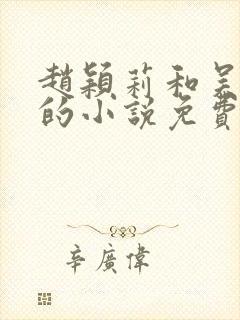 趙穎莉和吴
的小說免費
辛廣偉